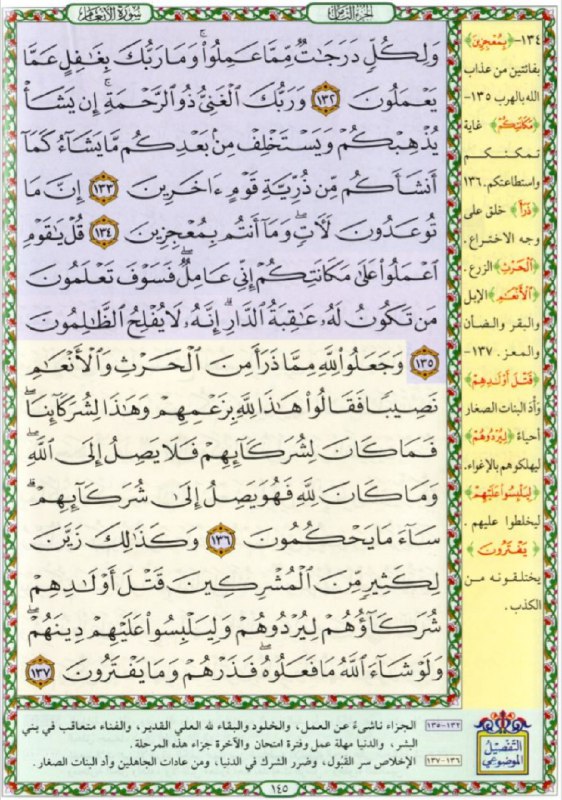 سورة الأنعام
الجزء الثامن
وَلِكُلٍّ دَرَجَٰتٌ مِّمَّا عَمِلُوا۟ ۚ وَمَا رَبُّكَ بِغَٰفِلٍ عَمَّا
يَعْمَلُونَ ١٣٢ وَرَبُّكَ ٱلْغَنِىُّ ذُو ٱلرَّحْمَةِ ۚ إِن يَشَأْ
يُذْهِبْكُمْ وَيَسْتَخْلِفْ مِنۢ بَعْدِكُم مَّا يَشَآءُ كَمَآ
أَنشَأَكُم مِّن ذُرِّيَّةِ قَوْمٍ ءَاخَرِينَ ١٣٣ إِنَّ مَا
تُوعَدُونَ لَءَاتٍ ۖ وَمَآ أَنتُم بِمُعْجِزِينَ ١٣٤ قُلْ يَٰقَوْمِ
ٱعْمَلُوا۟ عَلَىٰ مَكَانَتِكُمْ إِنِّى عَامِلٌ ۖ فَسَوْفَ تَعْلَمُونَ
مَن تَكُونُ لَهُۥ عَٰقِبَةُ ٱلدَّارِ ۗ إِنَّهُۥ لَا يُفْلِحُ ٱلظَّٰلِمُونَ
١٣٥ وَجَعَلُوا۟ لِلَّهِ مِمَّا ذَرَأَ مِنَ ٱلْحَرْثِ وَٱلْأَنْعَٰمِ
نَصِيبًا فَقَالُوا۟ هَٰذَا لِلَّهِ بِزَعْمِهِمْ وَهَٰذَا لِشُرَكَآئِنَا ۖ
فَمَا كَانَ لِشُرَكَآئِهِمْ فَلَا يَصِلُ إِلَى ٱللَّهِ ۖ
وَمَا كَانَ لِلَّهِ فَهُوَ يَصِلُ إِلَىٰ شُرَكَآئِهِمْ ۗ
سَآءَ مَا يَحْكُمُونَ ١٣٦ وَكَذَٰلِكَ زَيَّنَ
لِكَثِيرٍ مِّنَ ٱلْمُشْرِكِينَ قَتْلَ أَوْلَٰدِهِمْ
شُرَكَآؤُهُمْ لِيُرْدُوهُمْ وَلِيَلْبِسُوا۟ عَلَيْهِمْ دِينَهُمْ ۖ
وَلَوْ شَآءَ ٱللَّهُ مَا فَعَلُوهُ ۖ فَذَرْهُمْ وَمَا يَفْتَرُونَ ١٣٧
١٣٤- ﴿بِمُعْجِزِينَ﴾
بفائتين من عذاب
الله بالهرب ١٣٥-
﴿مَكَانَتِكُمْ﴾ غاية
تمكنكم
واستطاعتكم. ١٣٦-
﴿ذَرَأَ﴾ خلق على
وجه الاختراع.
﴿ٱلْحَرْثِ﴾ الزرع.
﴿ٱلْأَنْعَٰمِ﴾ الإبل
والبقر والضأن
والمعز. ١٣٧-
﴿قَتْلَ أَوْلَٰدِهِمْ﴾
وأد البنات الصغار
أحياءً ﴿لِيُرْدُوهُمْ﴾
ليهلكوهم بالإغواء.
﴿لِيَلْبِسُوا۟ عَلَيْهِمْ﴾
ليخلطوا عليهم.
﴿يَفْتَرُونَ﴾
يختلقونه من
الكذب.
التفصيل
الموضوعي
١٣٢-١٣٥ الجزاء ناشئ عن العمل، والخلود والبقاء لله العلي القدير، والفناء متعاقب في بني
البشر، والدنيا مهلة عمل وفترة امتحان والآخرة جزاء هذه المرحلة.
١٣٦-١٣٧ الإخلاص سر القبول، وضرر الشرك في الدنيا، ومن عادات الجاهلين وأد البنات الصغار.
١٤٥